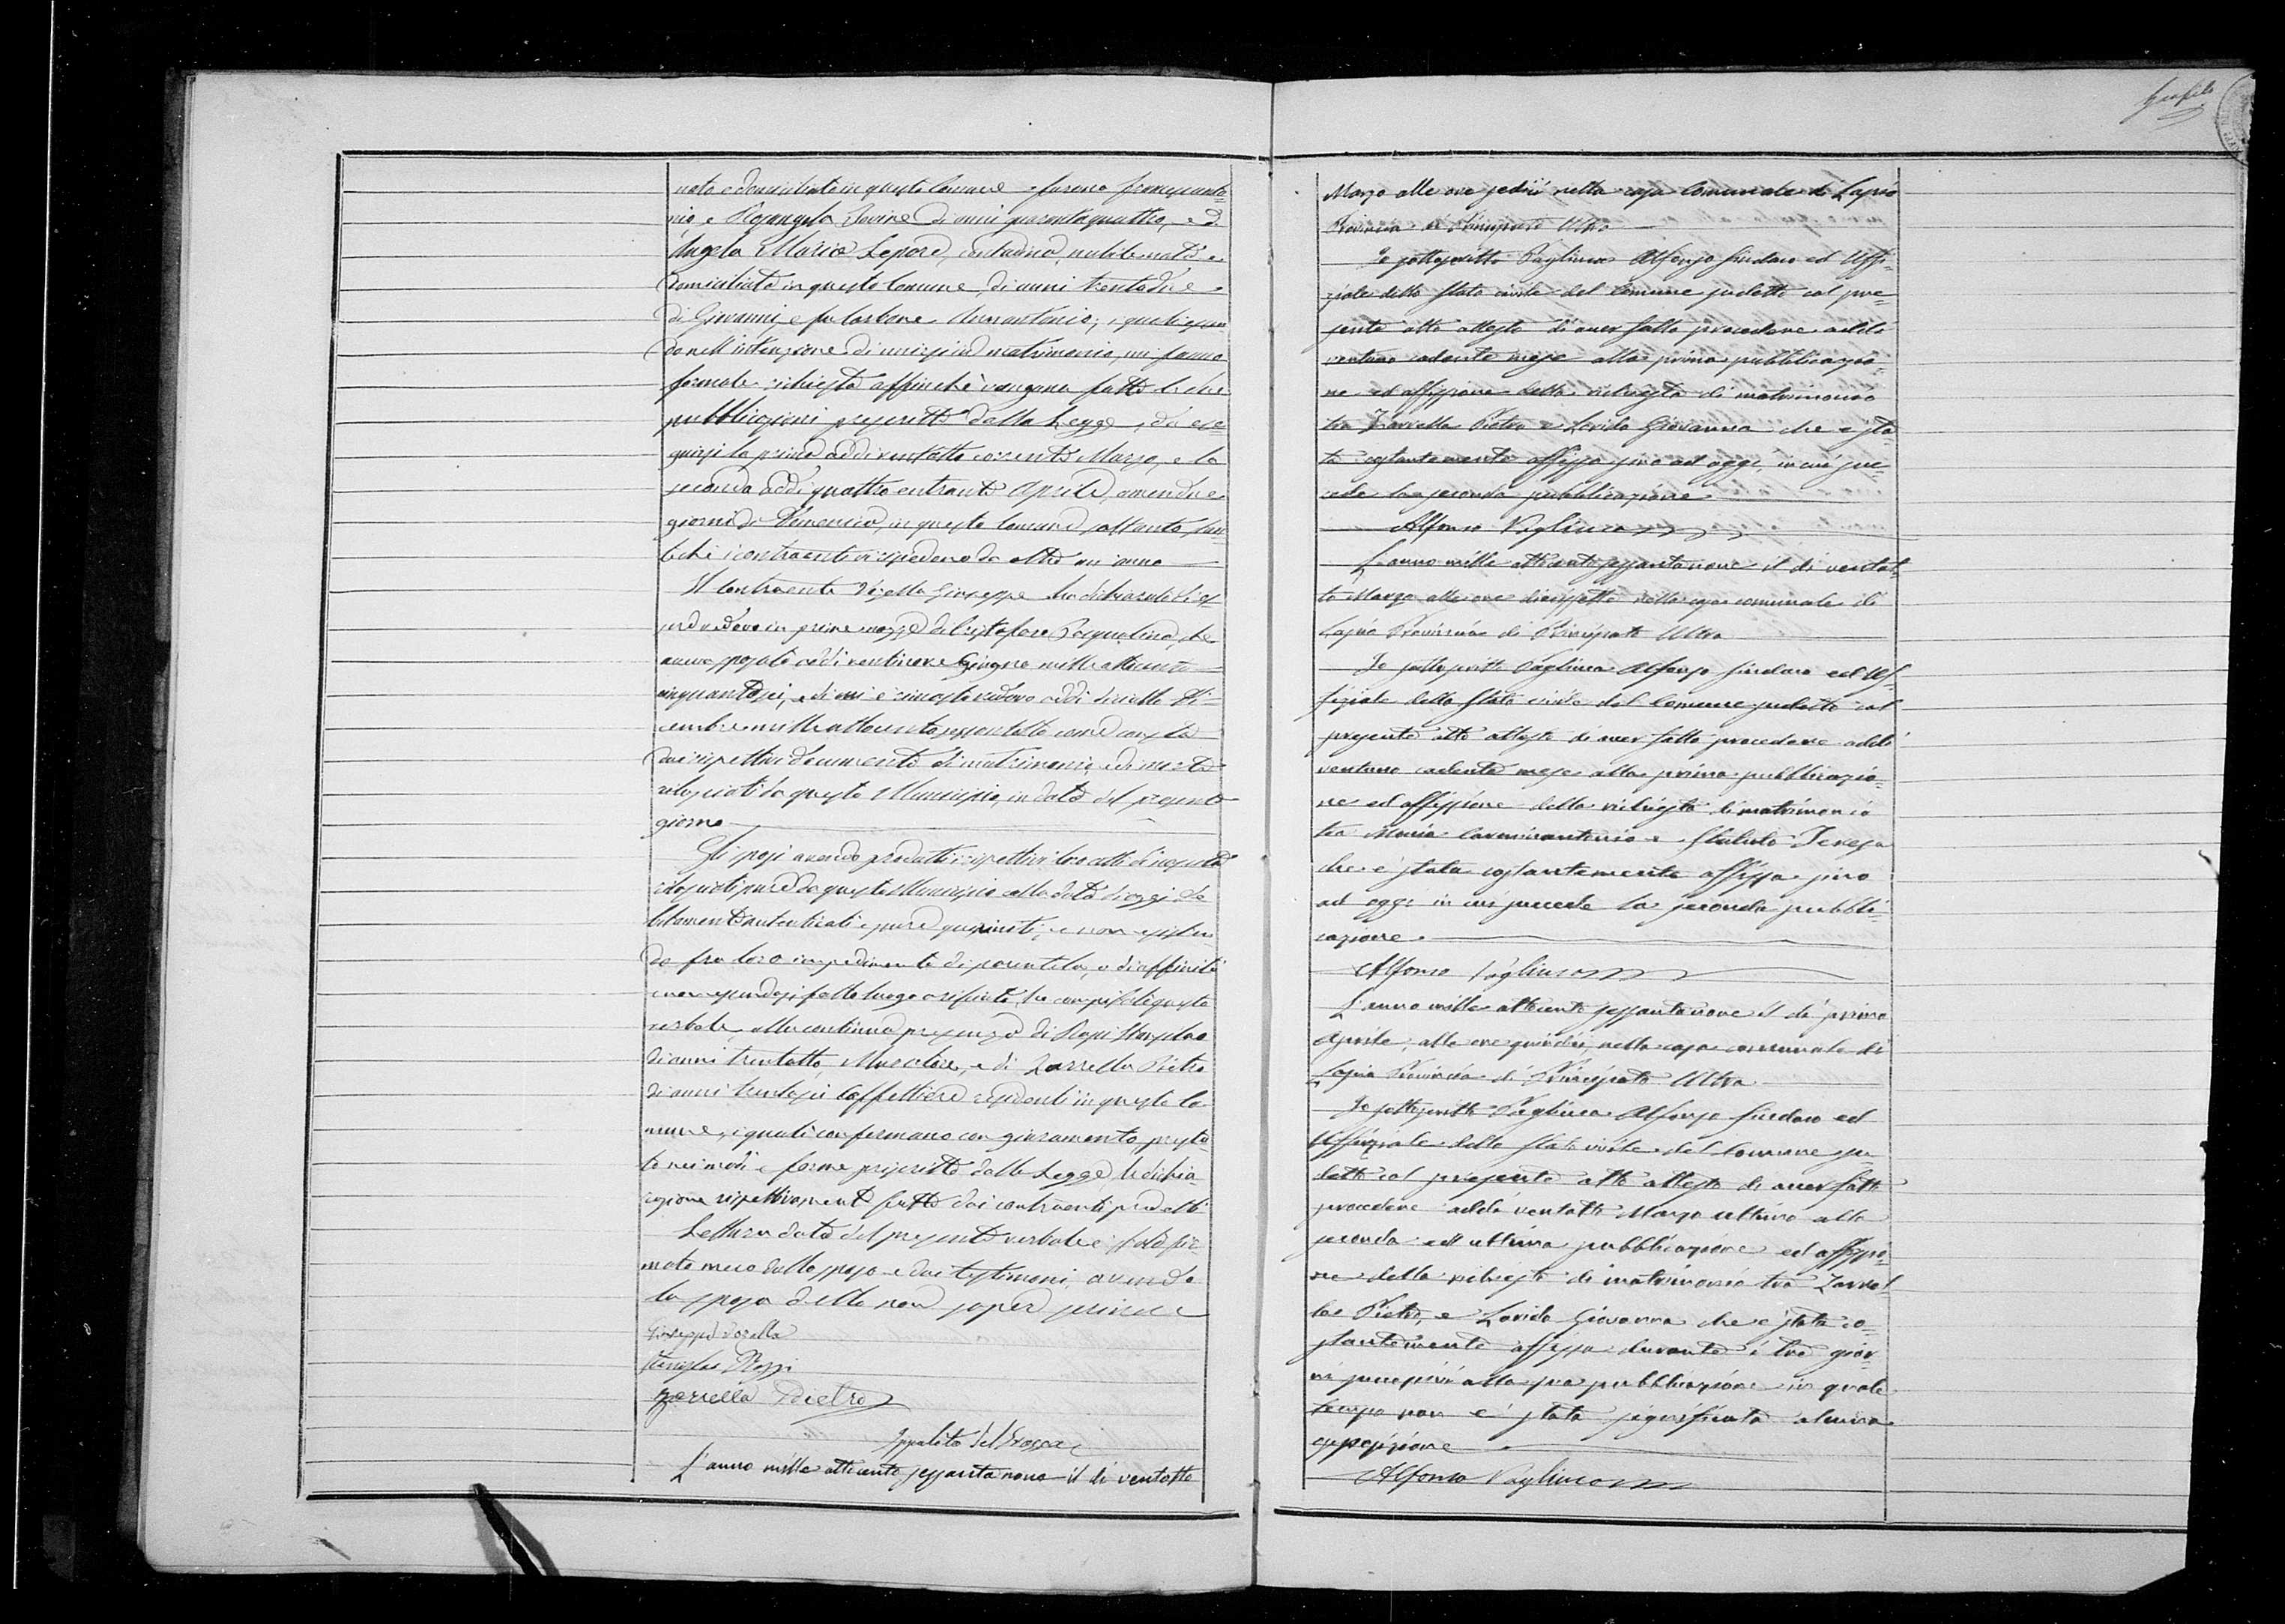 nato e domiciliato in questo Comune, e furono Francescanto
nio, e Rosangela Iavine di anni quarantaquattro, ed
Angela Maria Lepore, contadina, nubile nata e
domiciliata in questo Comune, di anni trentadue
di Giovanni, e fu Carbone Annantonia; i quali essen
do nell'intenzione di unirsi in matrimonio, mi fanno
formale richiesta affinchè vengano fatte le due
pubblicazioni prescritte dalla Legge, da ese=
guirsi la prima addi ventotto corrente Marzo, e la
seconda addi quattro entrante Aprile, amendue
giorni di Domenica, in questo Comune soltanto, 
chè i contraenti vi risiedono da oltre un anno
Il contraente Giuseppe ha dichiarato di es=
sere vedovo in prime nozze di Cristofaro Pasqualina, che
aveva sposato addi ventinove Giugno mille ottocento
cinquantasei, e di cui è rimasto vedovo addi diecisette Di=
cembre mille ottocento sessantotto come consta
dai rispettivi documenti di matrimonio, e di morte
rilasciati da questo Municipio, in data del presente
giorno
Gli sposi avendo prodotti i rispettivi loro atti di nascita
rilasciati pure da questo Municipio colla data di oggi de
bitamente autenticati e pure quì uniti, e non esisten
do fra loro impedimento di parentela, o di affinità
e non essendosi fatto luogo a rifiuto, ho compilato questo
verbale, alla continua presenza di Rossi Stanislao
di anni trentotto, Muratore, e di Zarrella Pietro
di anni ventisei Caffettiere residenti in questo Co
mune, i quali confermano con giuramento, presta
to nei modi e forme prescritte dalla Legge, la dichia=
razione rispettivamente fatta dai contraenti predetti
Lettura data del presente verbale è stato fir=
mato meco dallo sposo e dai testimoni, avendo
la sposa detto non sapere scrivere
Giuseppe
Stanislao Rossi
Zarrella Pietro
Ippolito Del Grosso
L'anno mille ottocento sessantanove il dì ventotto
Marzo alle ore sedici nella casa Comunale di Lapio
Provincia di Principato Ultra
Io sottoscritto Pagliuca Alfonso Sindaco ed Uffi=
ziale dello Stato civile del Comune sudetto col pre=
sente atto attesto di aver fatto procedere addì
ventuno cadente mese alla prima pubblicazio=
ne ed affissione della richiesta di matrimonio
tra Zarrella Pietro e Lavida Giovanna che è sta=
ta costantemente affissa sino ad oggi, in cui suc=
cede la seconda pubblicazione
Alfonso Pagliuca
L'anno mille ottocento sessantanove il dì ventot=
to Marzo alle ore diecisette nella casa comunale di
Lapio Provincia di Principato Ultra
Io sottoscritto Pagliuca Alfonso Sindaco ed Uf=
fiziale dello Stato civile del Comune sudetto col
presente atto attesto di aver fatto procedere addì
ventuno cadente mese alla prima pubblicazio=
ne ed affissione della richiesta di matrimonio
tra Carminantonio e Teresa
che è stata costantemente affissa sino
ad oggi in cui succede la seconda pubbli=
cazione
Alfonso Pagliuca
L'anno mille ottocento sessantanove il dì primo
Aprile, alle ore quindici, nella casa comunale di
Lapio Provincia di Principato Ultra
Io sottoscritto Pagliuca Alfonso Sindaco ed
Uffiziale dello Stato civile del Comune su
detto col presente atto attesto di aver fatto
procedere addì ventotto Marzo ultimo alla
seconda ed ultima pubblicazione ed affissio=
ne della richiesta di matrimonio tra Zarrel
la Pietro, e Lavida Giovanna che è stata co=
stantemente affissa durante i tre gior=
ni successivi alla sua pubblicazione in quale
tempo non è stata significata alcuna
opposizione
Alfonso Pagliuca